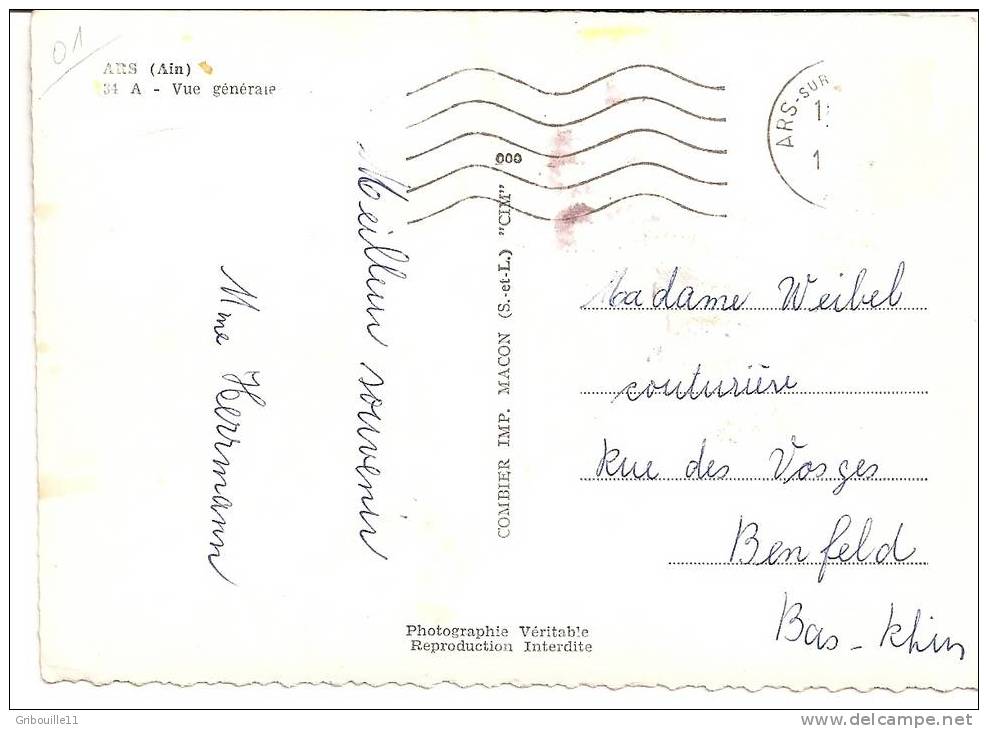 01
ARS (Ain)
34 A - Vue générale
ARS-SUR
1
1
000
COMBIER IMP. MACON (S.-et-L.) "CIM"
Meilleur souvenir
Mme Herrmann
Madame Weibel
couturière
Rue des Vosges
Benfeld
Bas-Rhin
Photographie Véritable
Reproduction Interdite
Gribouille11
www.delcampe.net